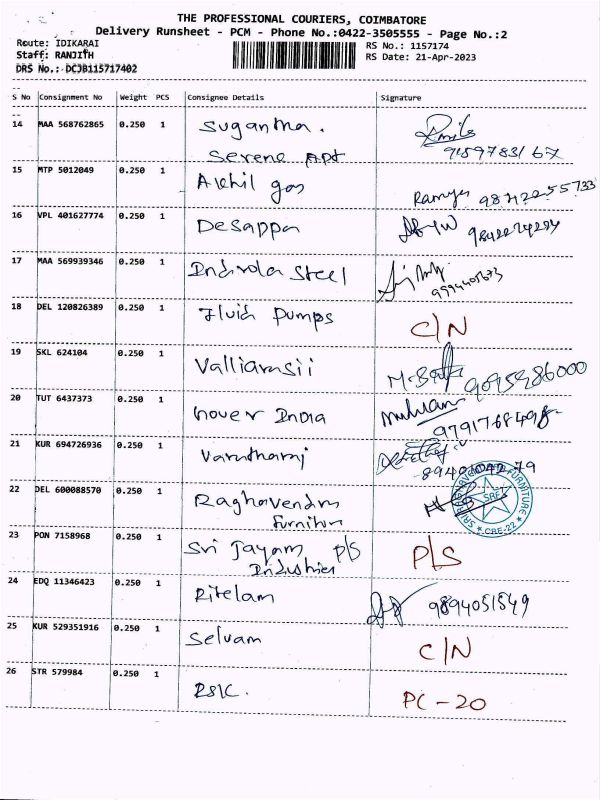 THE PROFESSIONAL COURIERS, COIMBATORE
Delivery Runsheet - PCM - Phone No.:0422-3505555 - Page No.:2
Route: IDIKARAI
RS No.: 1157174
Staff: RANJITH
RS Date: 21-Apr-2023
DRS No.: DCJB115717402
S No Consignment No Weight PCS Consignee Details Signature
14 MAA 568762865 0.250 1 Sugantha.
Serene Apt
15 MTP 5012049 0.250 1 Akhil gas Ramya
16 VPL 401627774 0.250 1 Desappa
17 MAA 569939346 0.250 1 Steel
18 DEL 120826389 0.250 1 Fluid Pumps C/N
19 SKL 624104 0.250 1 Valliarasii
20 TUT 6437373 0.250 1 hover India
9791768498
21 KUR 694726936 0.250 1 Varatharaj
22 DEL 600088570 0.250 1 Raghavendra
Furniture SRF
CBE-22
23 PON 7158968 0.250 1 Sri Jayam P/S P/S
Industries
24 EDQ 11346423 0.250 1 Ritelam 9894051549
25 KUR 529351916 0.250 1 Selvam C/N
26 STR 579984 0.250 1 RSIC. PC-20